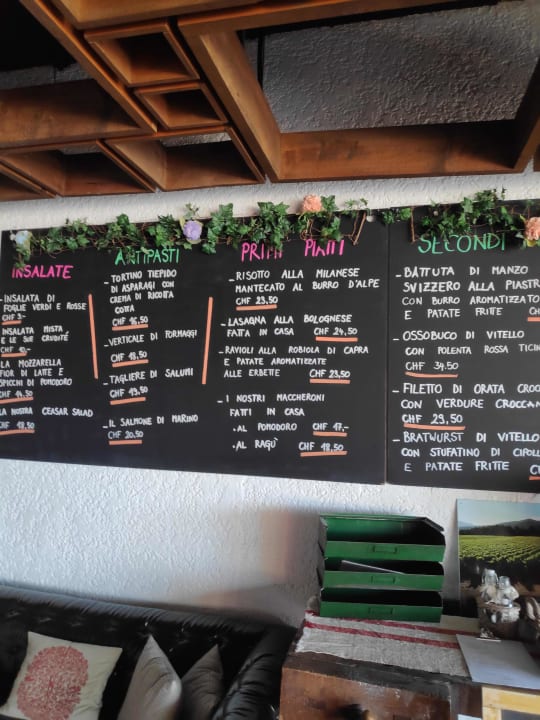 INSALATE
INSALATA DI
FOGLIE VERDI E ROSSE
CHF 9.-
INSALATA MISTA
E LE SUE CRUDITÉ
CHF
LA MOZZARELLA
FIOR DI LATTE E
SPICCHI DI POMODORO
CHF 14.50
LA NOSTRA CEASAR SALAD
CHF 18.50
ANTIPASTI
- TORTINO TIEPIDO
DI ASPARAGI CON
CREMA DI RICOTTA
COTTA
CHF 16,50
- VERTICALE DI FORMAGGI
CHF 18.50
- TAGLIERE DI SALUMI
CHF 19.50
- IL SALMONE DI MARINO
CHF 20.50
PRIMI PIATTI
- RISOTTO ALLA MILANESE
MANTECATO AL BURRO D'ALPE
CHF 23,50
- LASAGNA ALLA BOLOGNESE
FATTA IN CASA CHF 24,50
- RAVIOLI ALLA ROBIOLA DI CAPRA
E PATATE AROMATIZZATE
ALLE ERBETTE CHF 23.50
- I NOSTRI MACCHERONI
FATTI IN CASA
. AL POMODORO CHF 17.-
. AL RAGÙ CHF 18,50
SECONDI
- BATTUTA DI MANZO
SVIZZERO ALLA PIASTR
CON BURRO AROMATIZZATO
E PATATE FRITTE CHF
- OSSOBUCO DI VITELLO
CON POLENTA ROSSA TICIN
CHF 34.50
- FILETTO DI ORATA CROCC
CON VERDURE CROCCAN
CHF 29,50
- BRATWURST DI VITELLO
CON STUFATINO DI CIPOLL
E PATATE FRITTE